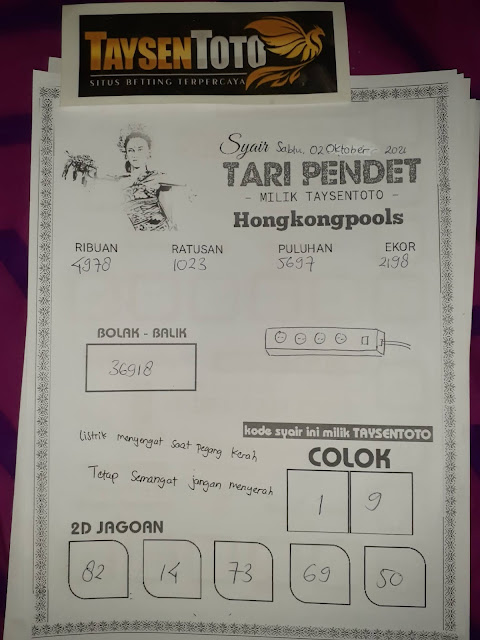 TAYSENTOTO
SITUS BETTING TERPERCAYA
Syair Sabtu, 02 Oktober 2021
TARI PENDET
- MILIK TAYSENTOTO -
Hongkongpools
RIBUAN RATUSAN PULUHAN EKOR
4978 1023 5697 2198
BOLAK - BALIK
36918
kode syair ini milik TAYSENTOTO
listrik menyengat saat pegang kerah
Tetap Semangat jangan menyerah
COLOK
1 9
2D JAGOAN
82 14 73 69 50